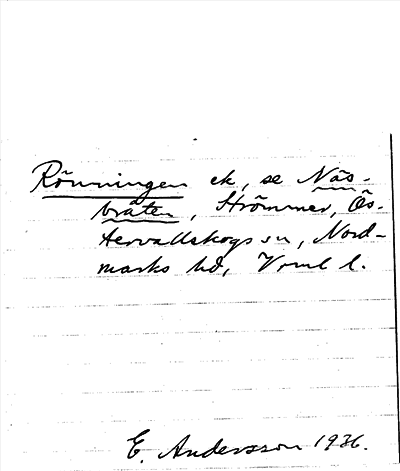 Rönningen ek, se Näs-
bråten, Strömmer, Ös-
tervallskogs sn, Nord-
marks hd, Vrml l.
E. Andersson 1936.